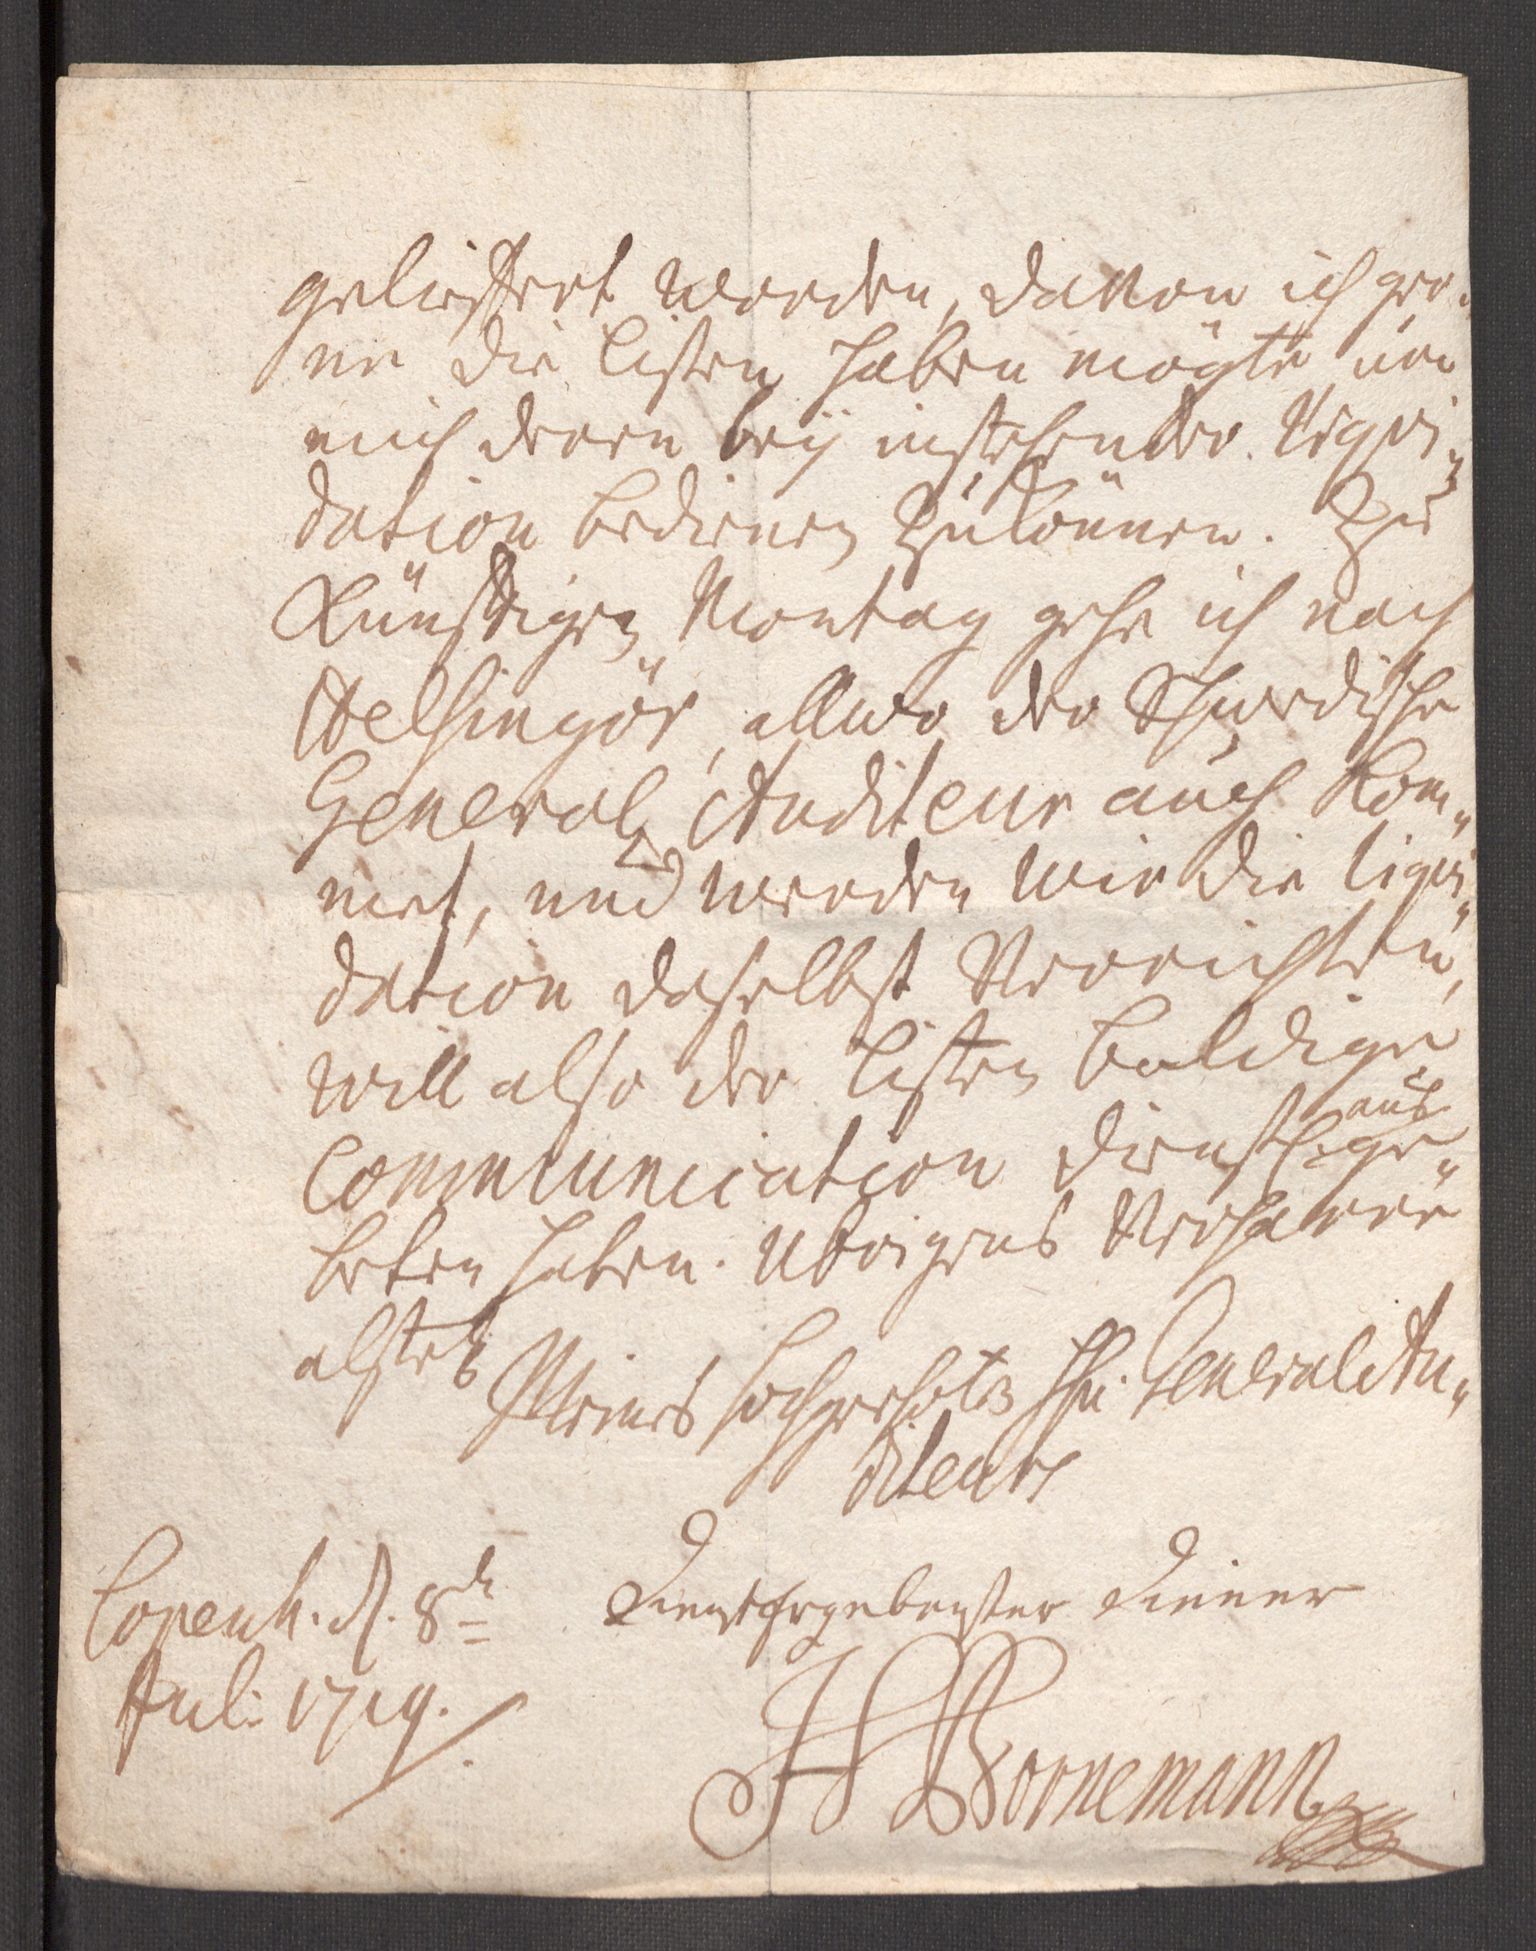 gelieffert worden, davon ich ger-
ne die Listen haben mögte, um
mich deren beÿ instehender Liqvi-
dation bedienen zu können. Zu
Künfftigen Montag gehe ich nach
Helsingör, allwo der Schwedische
General Auditeur auch Kom-
met, und werden wir die liqvi-
dation daselbst Verrichten,
will also der Listen baldige
Communication dienstl. ausge-
beten haben. Ubrigens Verharre
alstets
Meines hochgeehrten Hn. General Au-
diteurs
Dienstergebenster Diener
Copenh. d. 8te
Jul: 1719.
H Bornemann